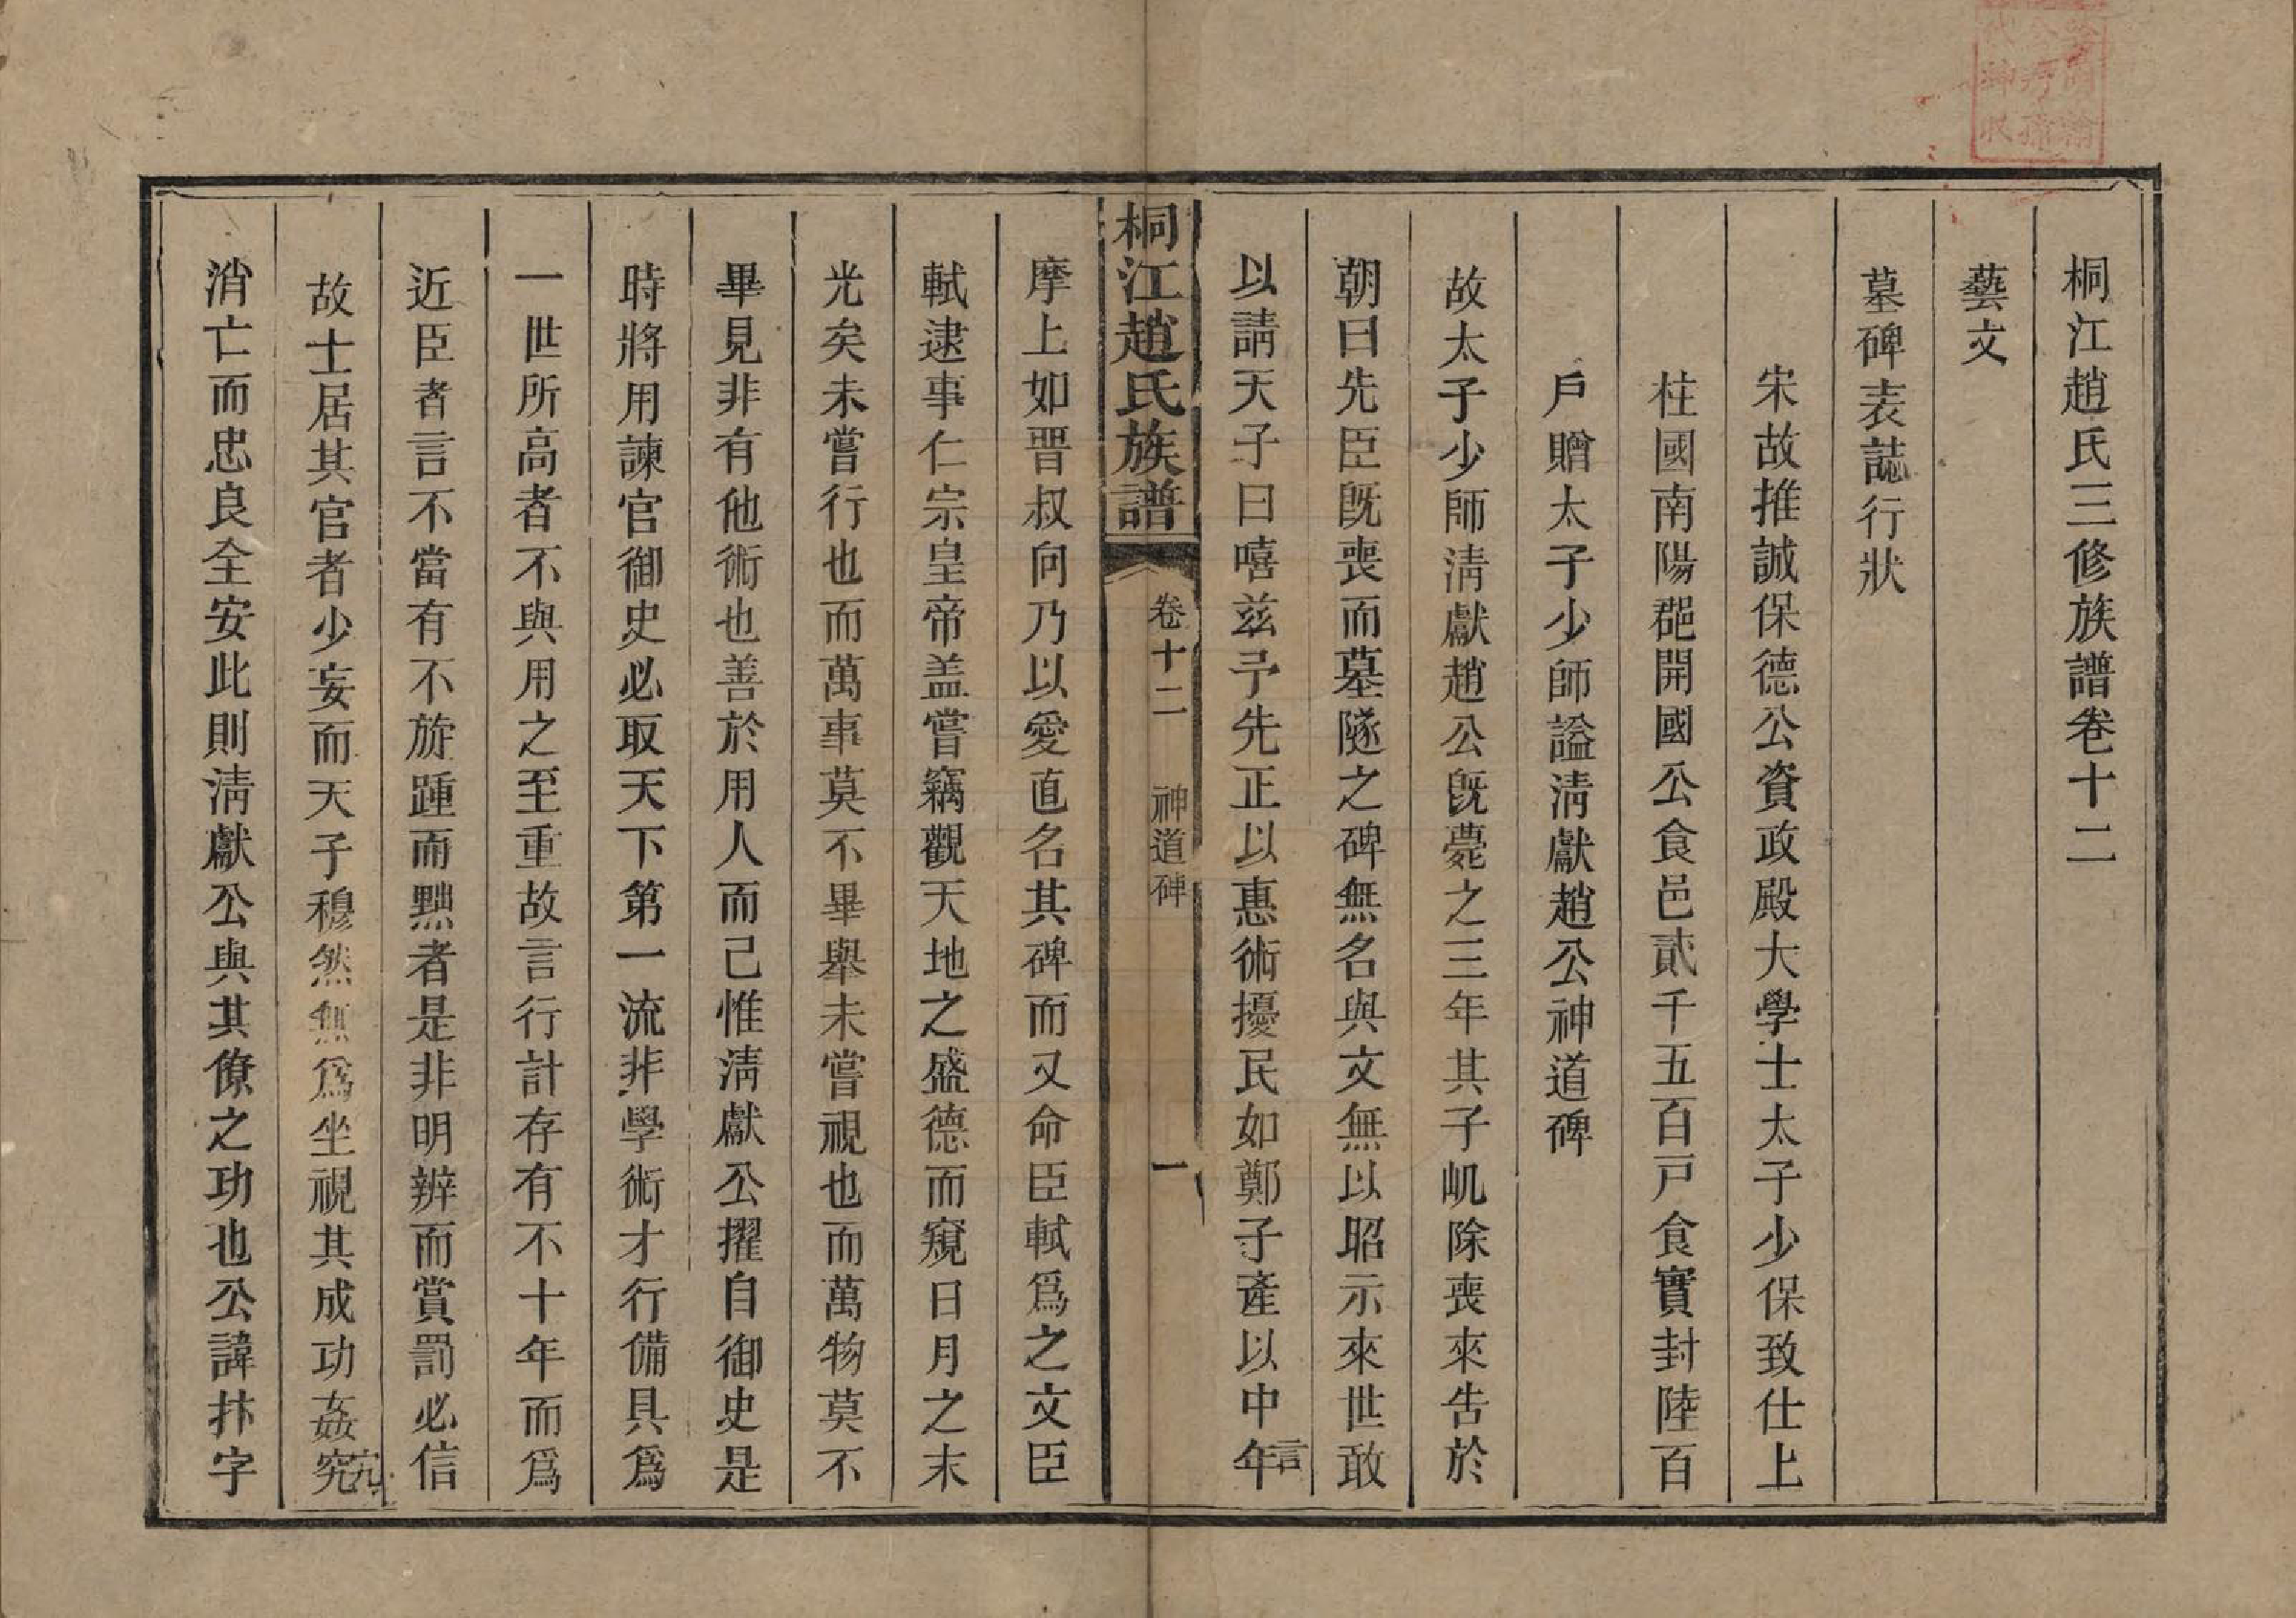 桐江趙氏三修族譜卷十二
藝文
墓碑表誌行狀
宋故推誠保德公資政殿大學士太子少保致仕上
柱國南陽郡開國公食邑貳千五百戸食實封陸百
戸贈太子少師謚淸獻趙公神道碑
故太子少師淸獻趙公旣薨之三年其子屼除喪來告於
朝曰先臣旣喪而墓隧之碑無名與文無以昭示來世敢
以請天子曰嘻兹予先正以惠術擾民如鄭子產以中年言
桐江趙氏族譜
卷十二
神道碑
一
摩上如晋叔向乃以愛直名其碑而又命臣軾爲之文臣
軾逮事仁宗皇帝盖嘗竊觀天地之盛德而窺日月之末
光矣未嘗行也而萬事莫不畢舉未嘗視也而萬物莫不
畢見非有他術也善於用人而已惟淸獻公擢自御史是
時將用諫官御史必取天下第一流非學術才行備具爲
一世所高者不與用之至重故言行計存有不十年而爲
近臣者言不當有不旋踵而黜者是非明辨而賞罰必信
故士居其官者少妄而天子穆然無爲坐視其成功姦究宄
消亡而忠良全安此則淸獻公與其僚之功也公諱抃字